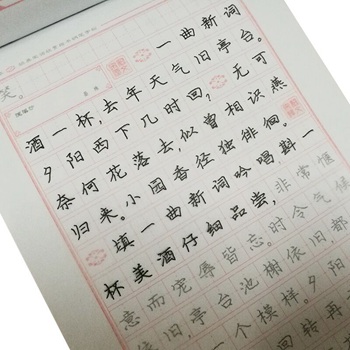 笑。
一曲新词
酒一杯,去年天气旧亭台。
夕阳西下几时回,无可
奈何花落去,似曾相识燕
归来。小园香径独徘徊。
填一曲新词吟唱,斟一
杯美酒仔细品尝,非常惬
意而宠辱皆忘。时令气候
依旧,亭台池榭依旧,都
一个模样。夕阳
回转再